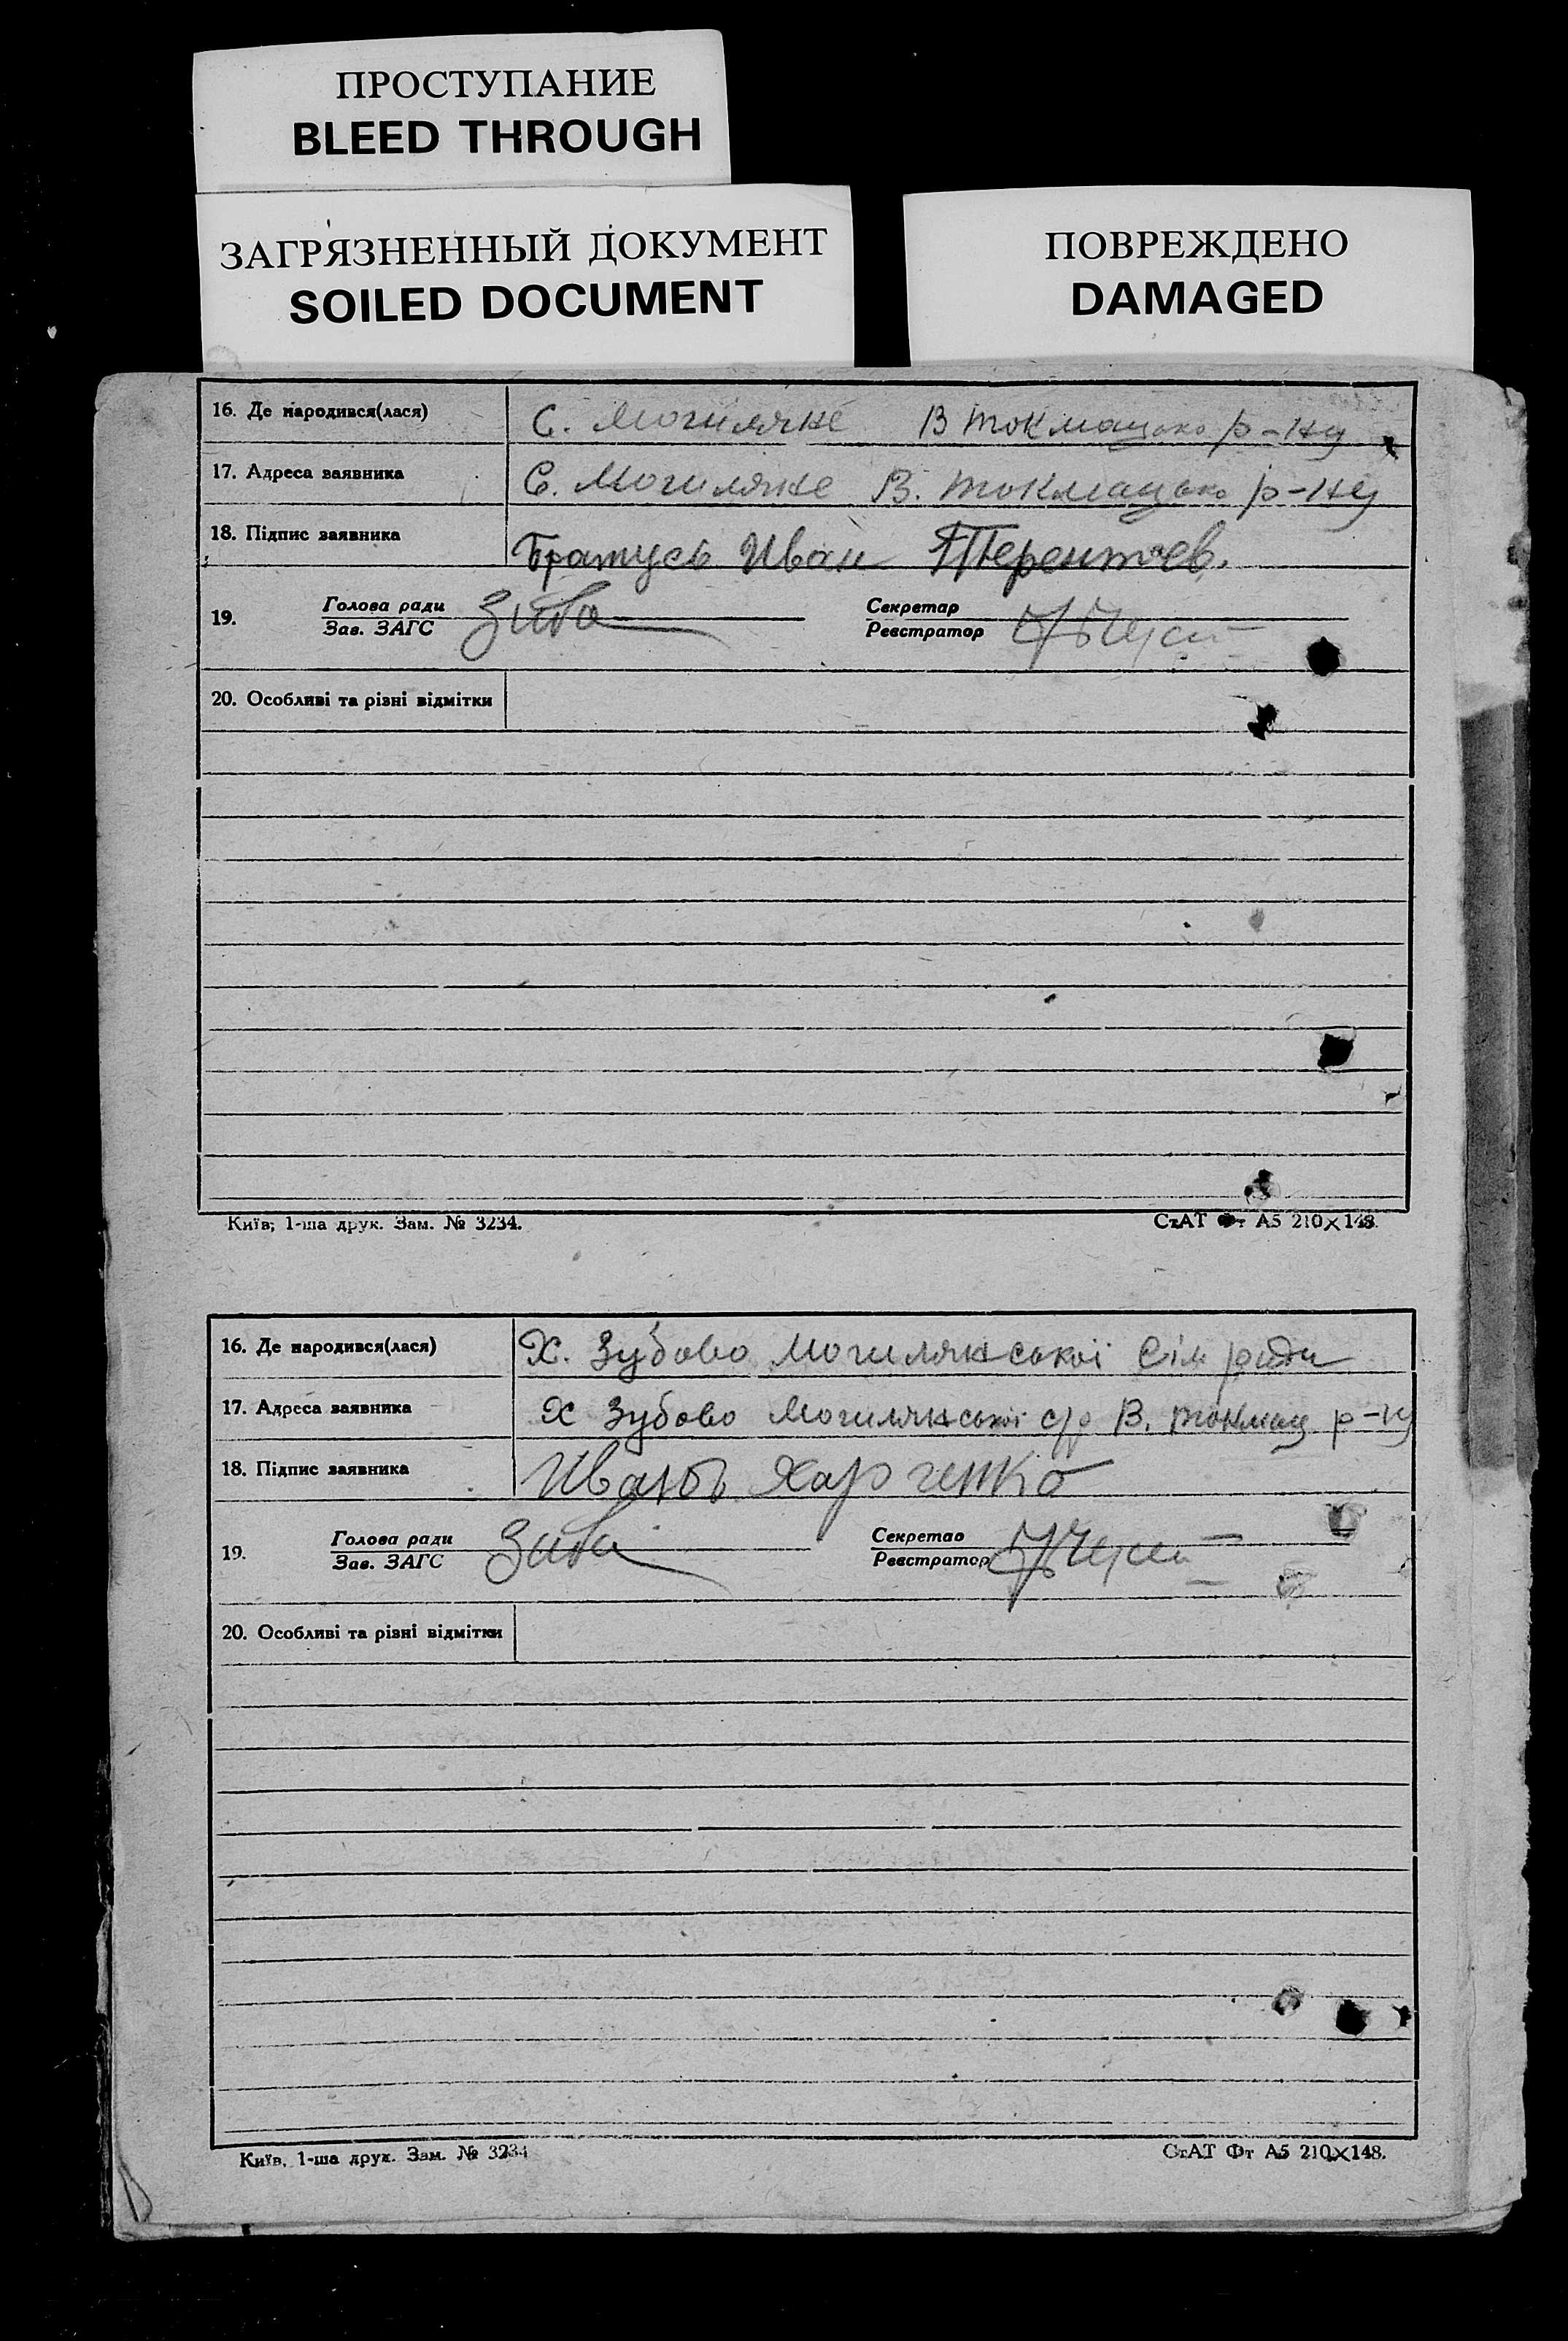 ПРОСТУПАНИЕ
BLEED THROUGH
ЗАГРЯЗНЕННЫЙ ДОКУМЕНТ
SOILED DOCUMENT
ПОВРЕЖДЕНО
DAMAGED
16. Де народився(лася) С. Могиляне В Токмацько р-ну
17. Адреса заявника С. Могиляне В. Токмацько р-ну
18. Підпис заявника Братусь Иван Терентьев.
19. Голова ради Секретар
Зав. ЗАГС Реєстратор
20. Особливі та різні відмітки
Київ; 1-ша друк. Зам. № 3234. СтАТ Фт А5 210×148.
16. Де народився(лася) Х. Зубово Могилянської Сіл ради
17. Адреса заявника Х Зубово Могилянської с/р В. Токмац р-ну
18. Підпис заявника Иванъ Харченко
19. Голова ради Секретар
Зав. ЗАГС Реєстратор
20. Особливі та різні відмітки
Київ, 1-ша друк. Зам. № 3234 СтАТ Фт А5 210×148.